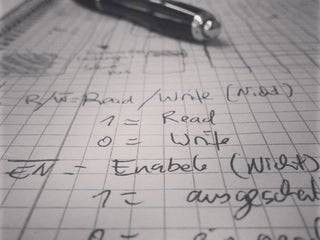 R/W̅ = Read / Write (Nicht)
1 = Read
0 = Write
E̅N̅ = Enabele (Nicht)
1 = ausgeschal
0 =